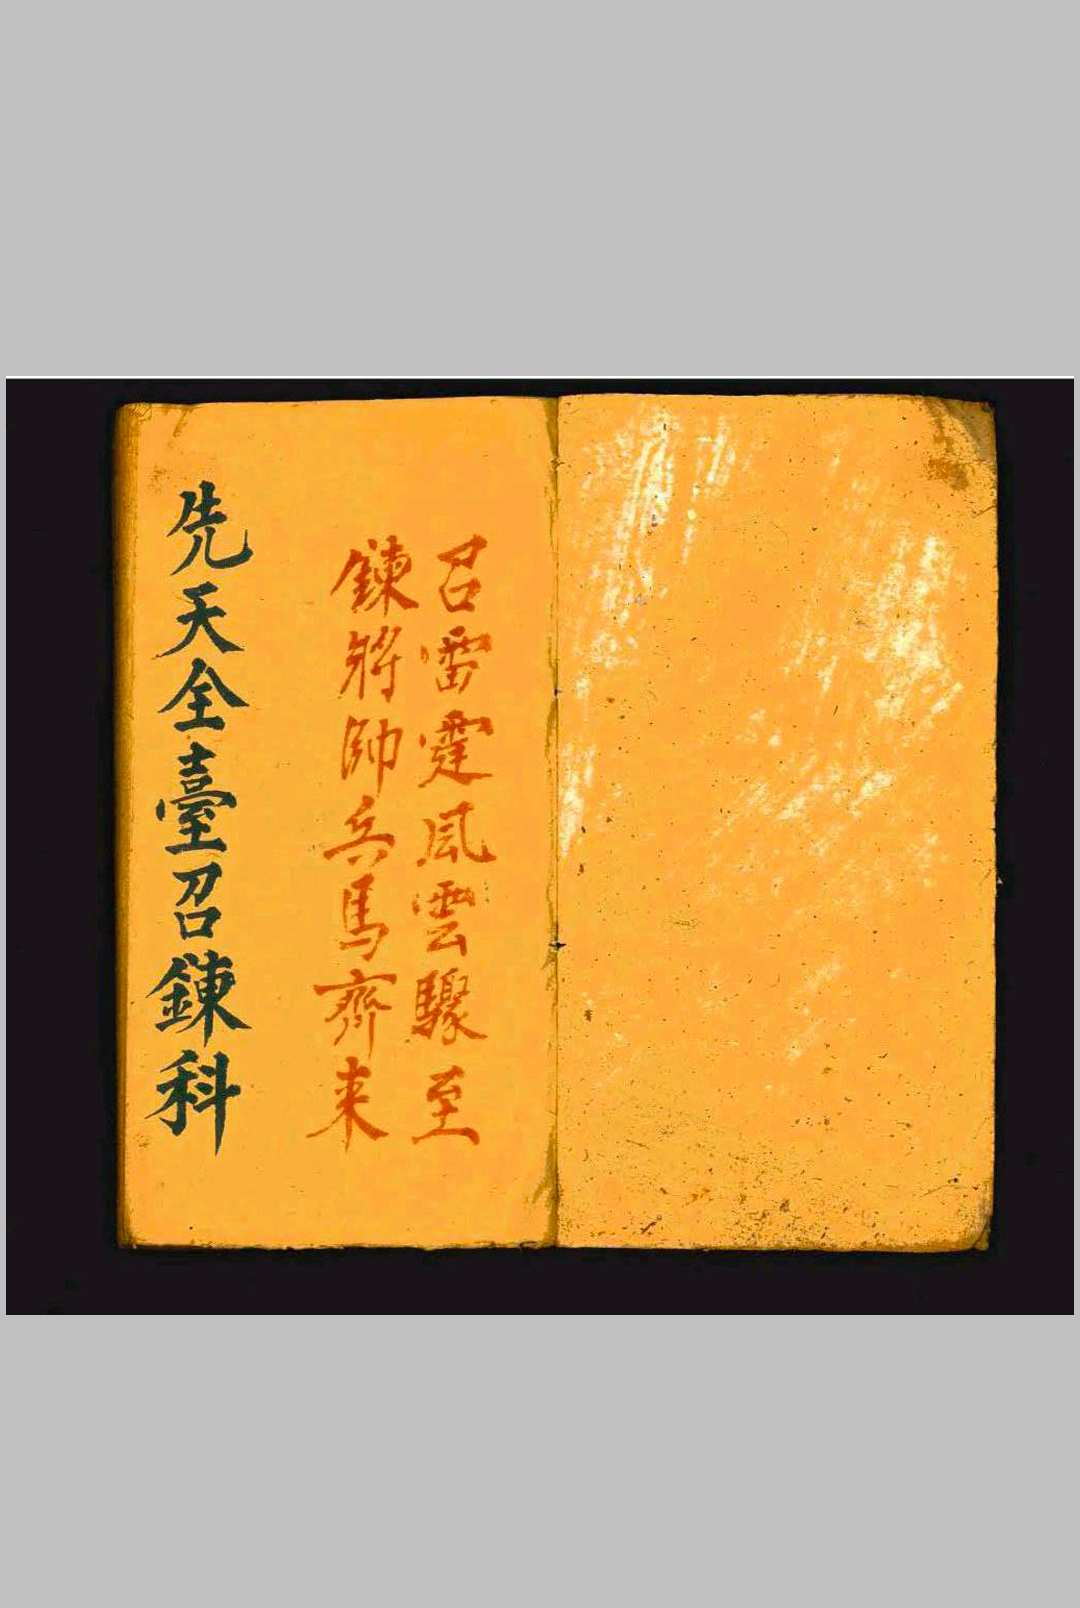 召雷霆風雲驟至
鍊將帥兵馬齊来
先天全臺召鍊科